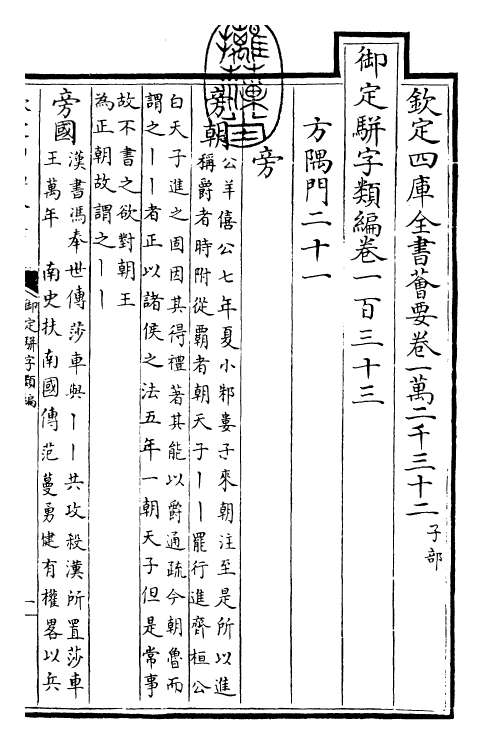 欽定四庫全書薈要卷一萬二千三十二子部
御定駢字類編卷一百三十三
方隅門二十一
旁
旁朝公羊僖公七年夏小邾婁子來朝注至是所以進
稱爵者時附從覇者朝天子丨丨罷行進齊桓公
白天子進之固因其得禮著其能以爵通疏今朝魯而
謂之丨丨者正以諸侯之法五年一朝天子但是常事
故不書之欲對朝王
為正朝故謂之丨丨
旁國漢書馮奉世傳莎車與丨丨共攻殺漢所置莎車
王萬年 南史扶南國傳范蔓勇健有權畧以兵
御定駢字類編
一